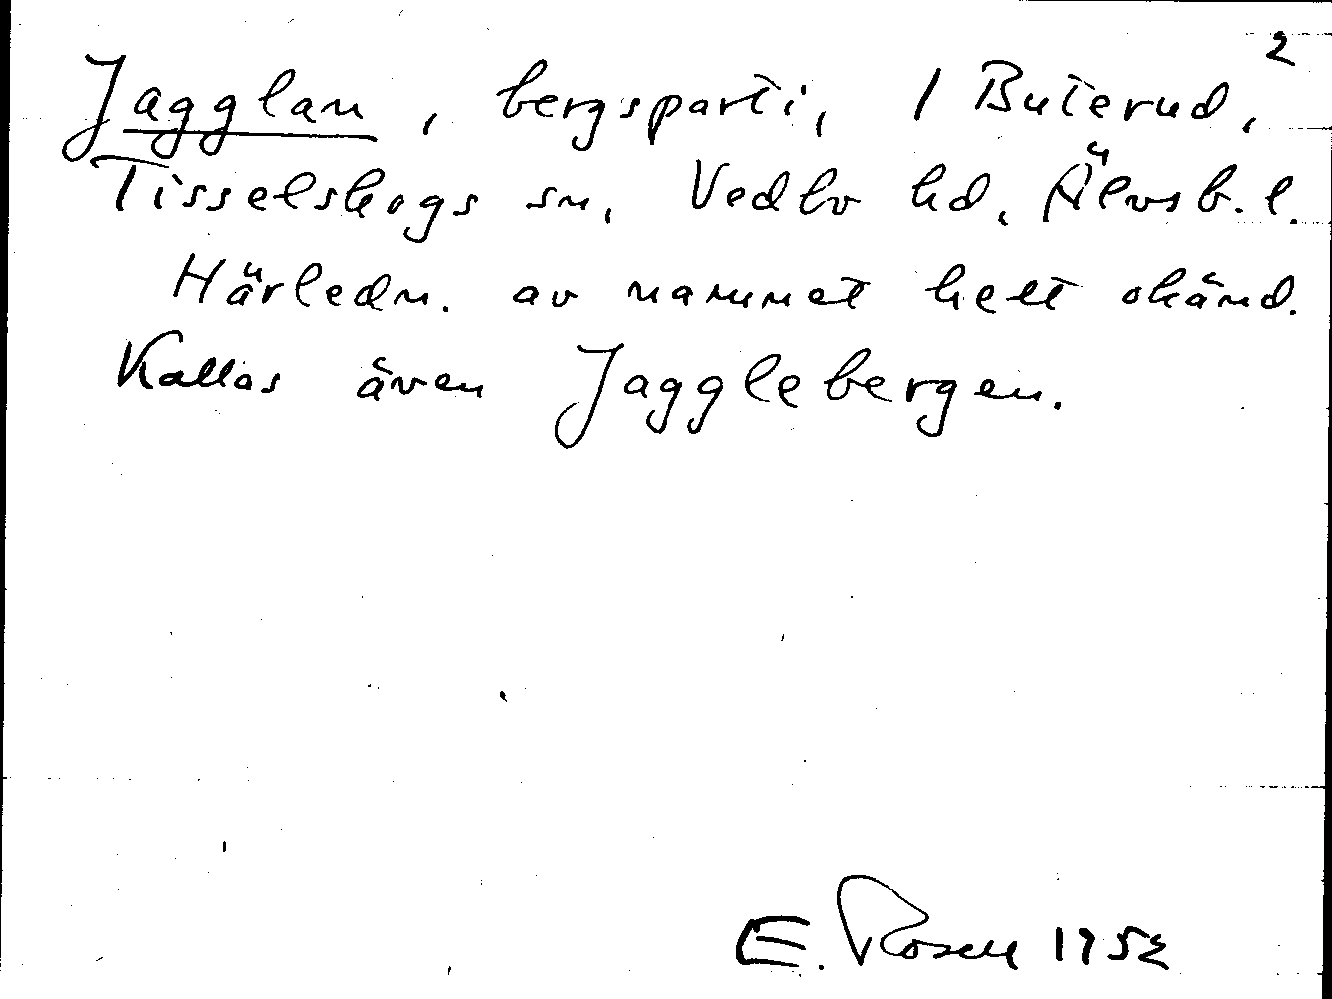 2
Jagglan, bergsparti, 1 Buterud,
Tisselskogs sn, Vedbo hd, Älvsb. l.
Härledn. av namnet helt okänd.
Kallas även Jagglebergen.
E. Rosell 1952